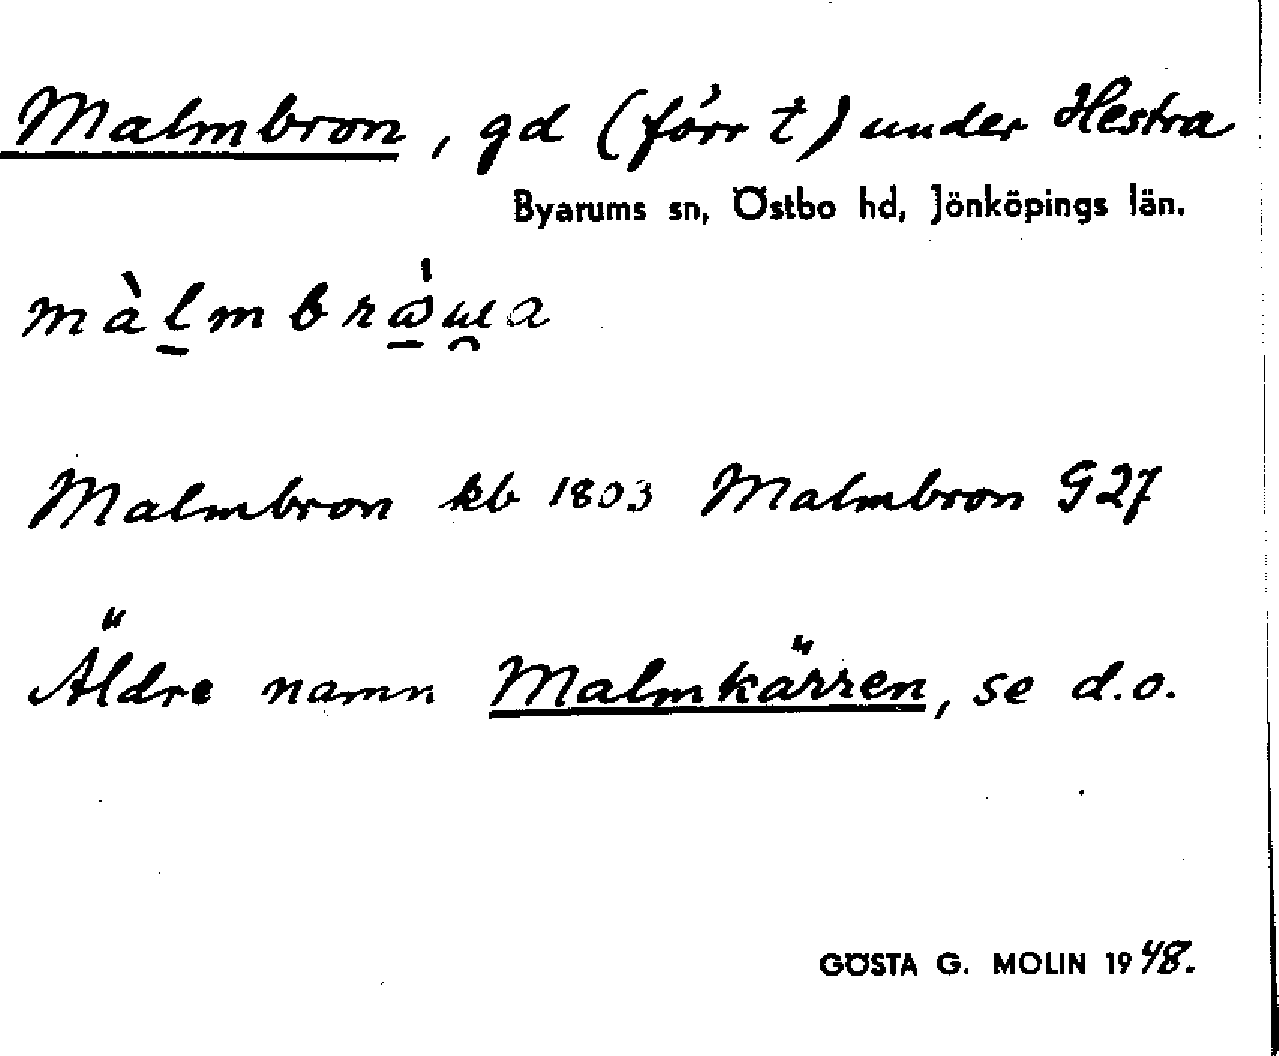 Malmbron, gd (förr t) under Hestra
Byarums sn, Östbo hd, Jönköpings län.
Malmbron kb 1803 Malmbron G27
Äldre namn Malmkärren, se d.o.
GÖSTA G. MOLIN 1948.